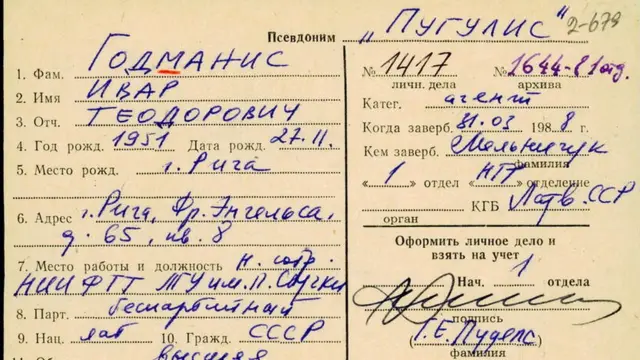 Псевдоним „ПУГУЛИС" 2-679
1. Фам. ГОДМАНИС
2. Имя ИВАР
3. Отч. ТЕОДОРОВИЧ
4. Год рожд. 1951 Дата рожд. 27.11.
5. Место рожд. г. Рига
6. Адрес г. Рига, Фр. Энгельса,
д. 65, кв. 8
7. Место работы и должность н. сотр.
НИИ ФТТ ЛГУ им. П. Стучки
8. Парт. беспартийный
9. Нац. лат 10. Гражд. СССР
высшее
№ 1417 № 1644-81отд.
личн. дела архива
Катег. агент
Когда заверб. 31.03 1988 г.
Кем заверб. Мельничук
фамилия
„ 1 " отдел „ НТР " отделение
КГБ Латв. ССР
орган
Оформить личное дело и
взять на учет
Нач. 1 отдела
подпись
(Г. Е. Пуделс)
фамилия